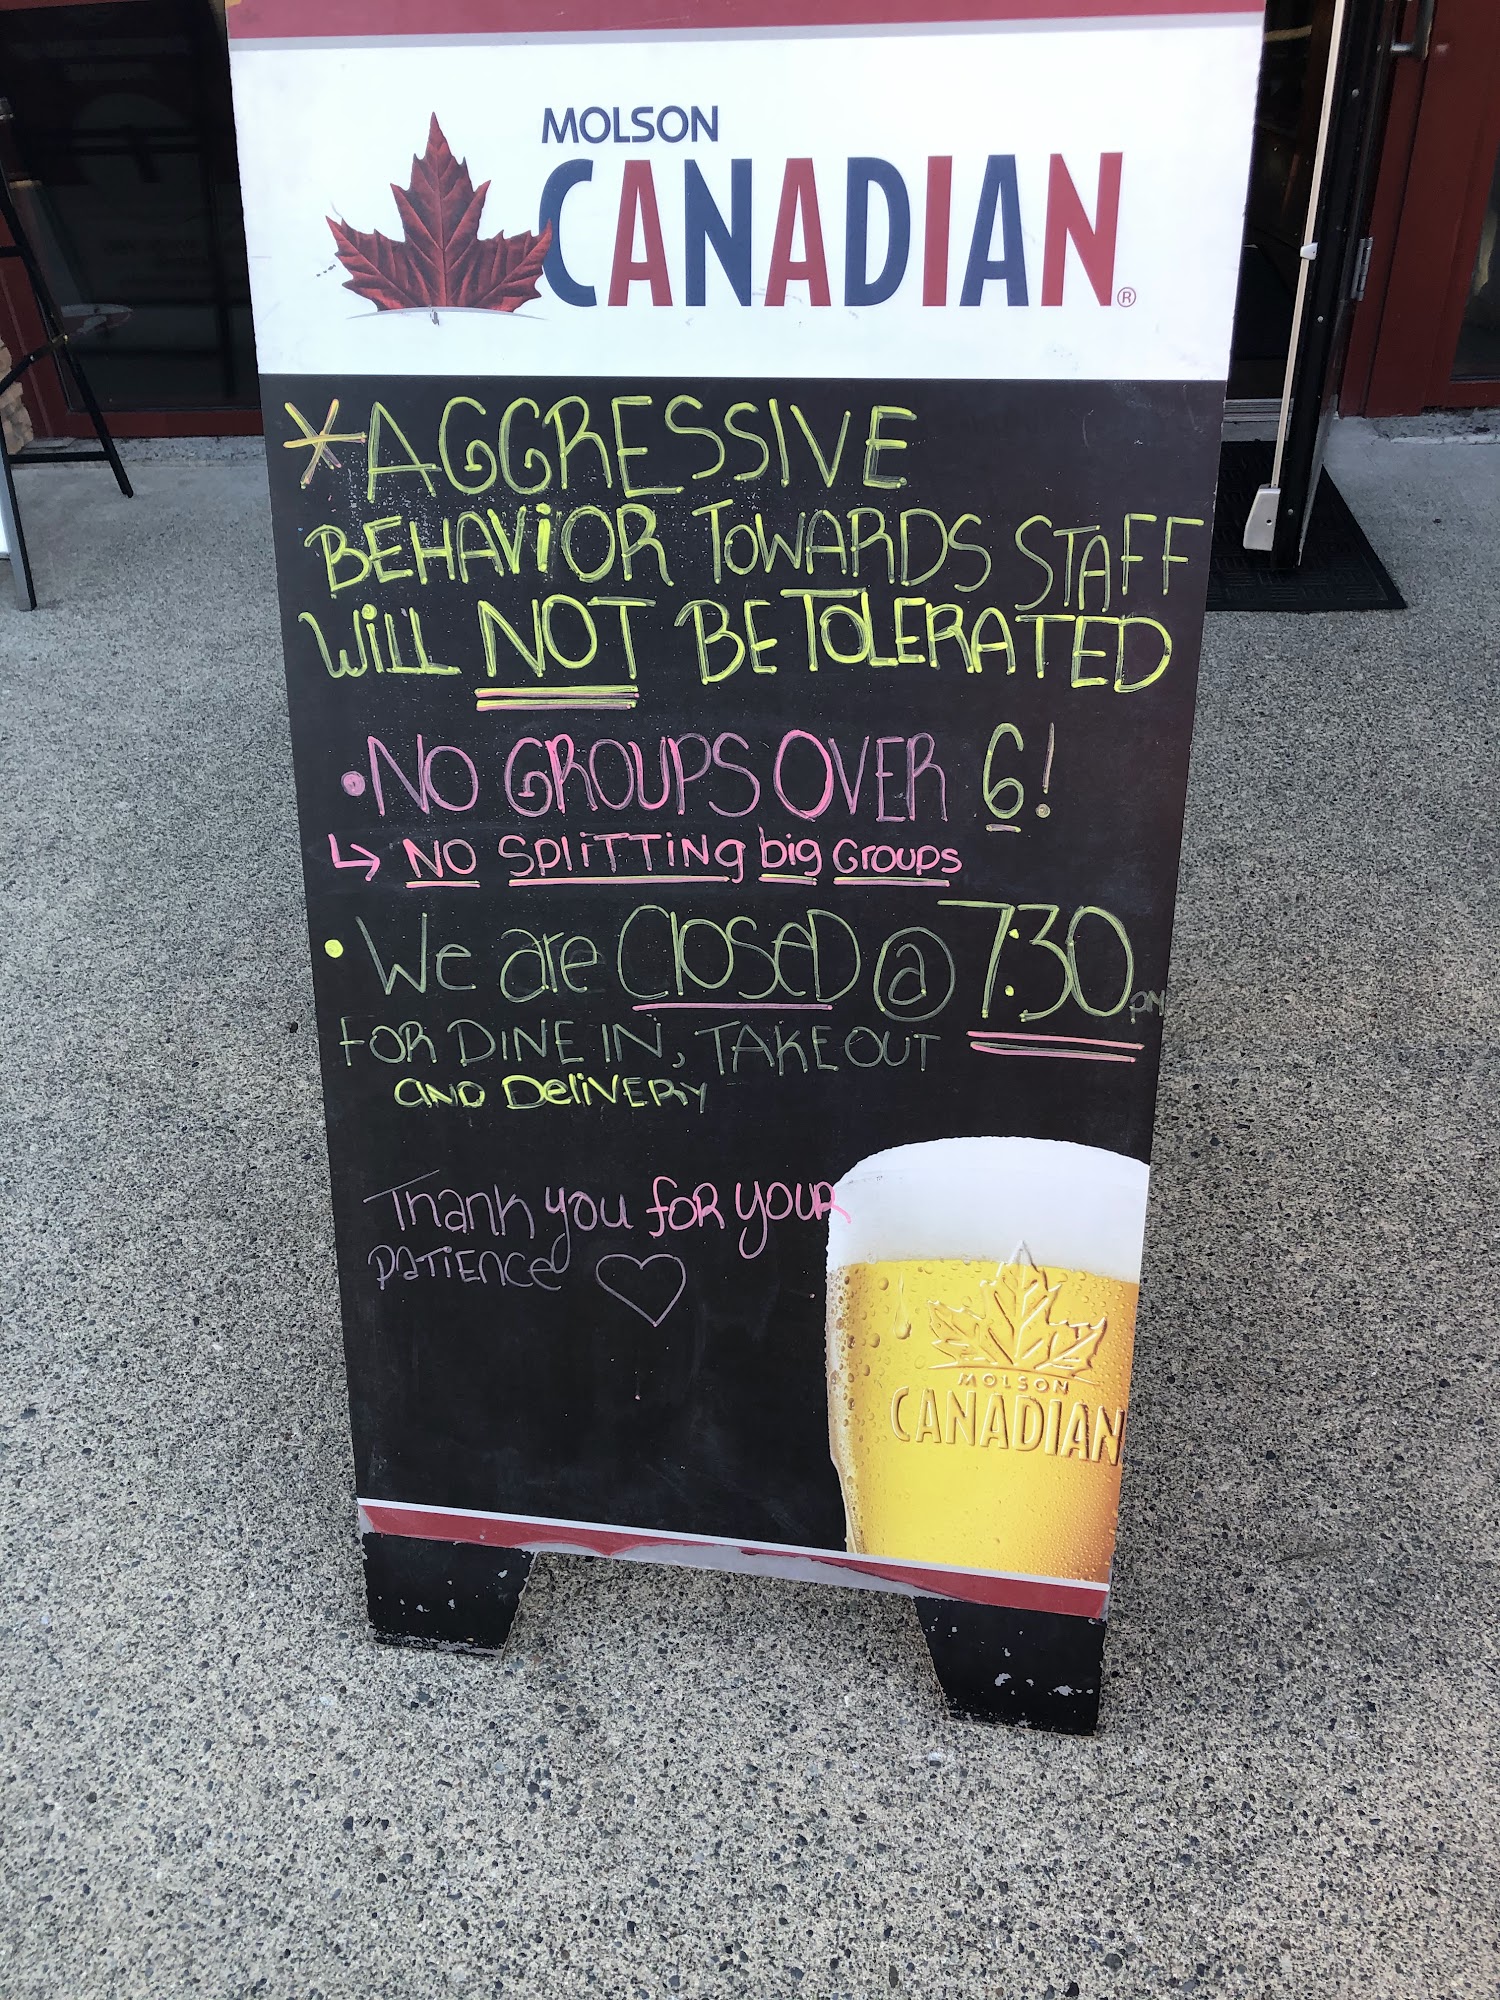 MOLSON
CANADIAN®
*AGGRESSIVE
BEHAViOR TOWARDS STAFF
WiLL NOT BE TOLERATED
• NO GROUPS OVER 6!
↳ NO SpliTTiNg big Groups
• We are Closed @ 7:30 pm
FOR DINE IN, TAKE OUT
AND DeliVERY
Thank you foR youR
PATiENCe ♡
MOLSON
CANADIAN